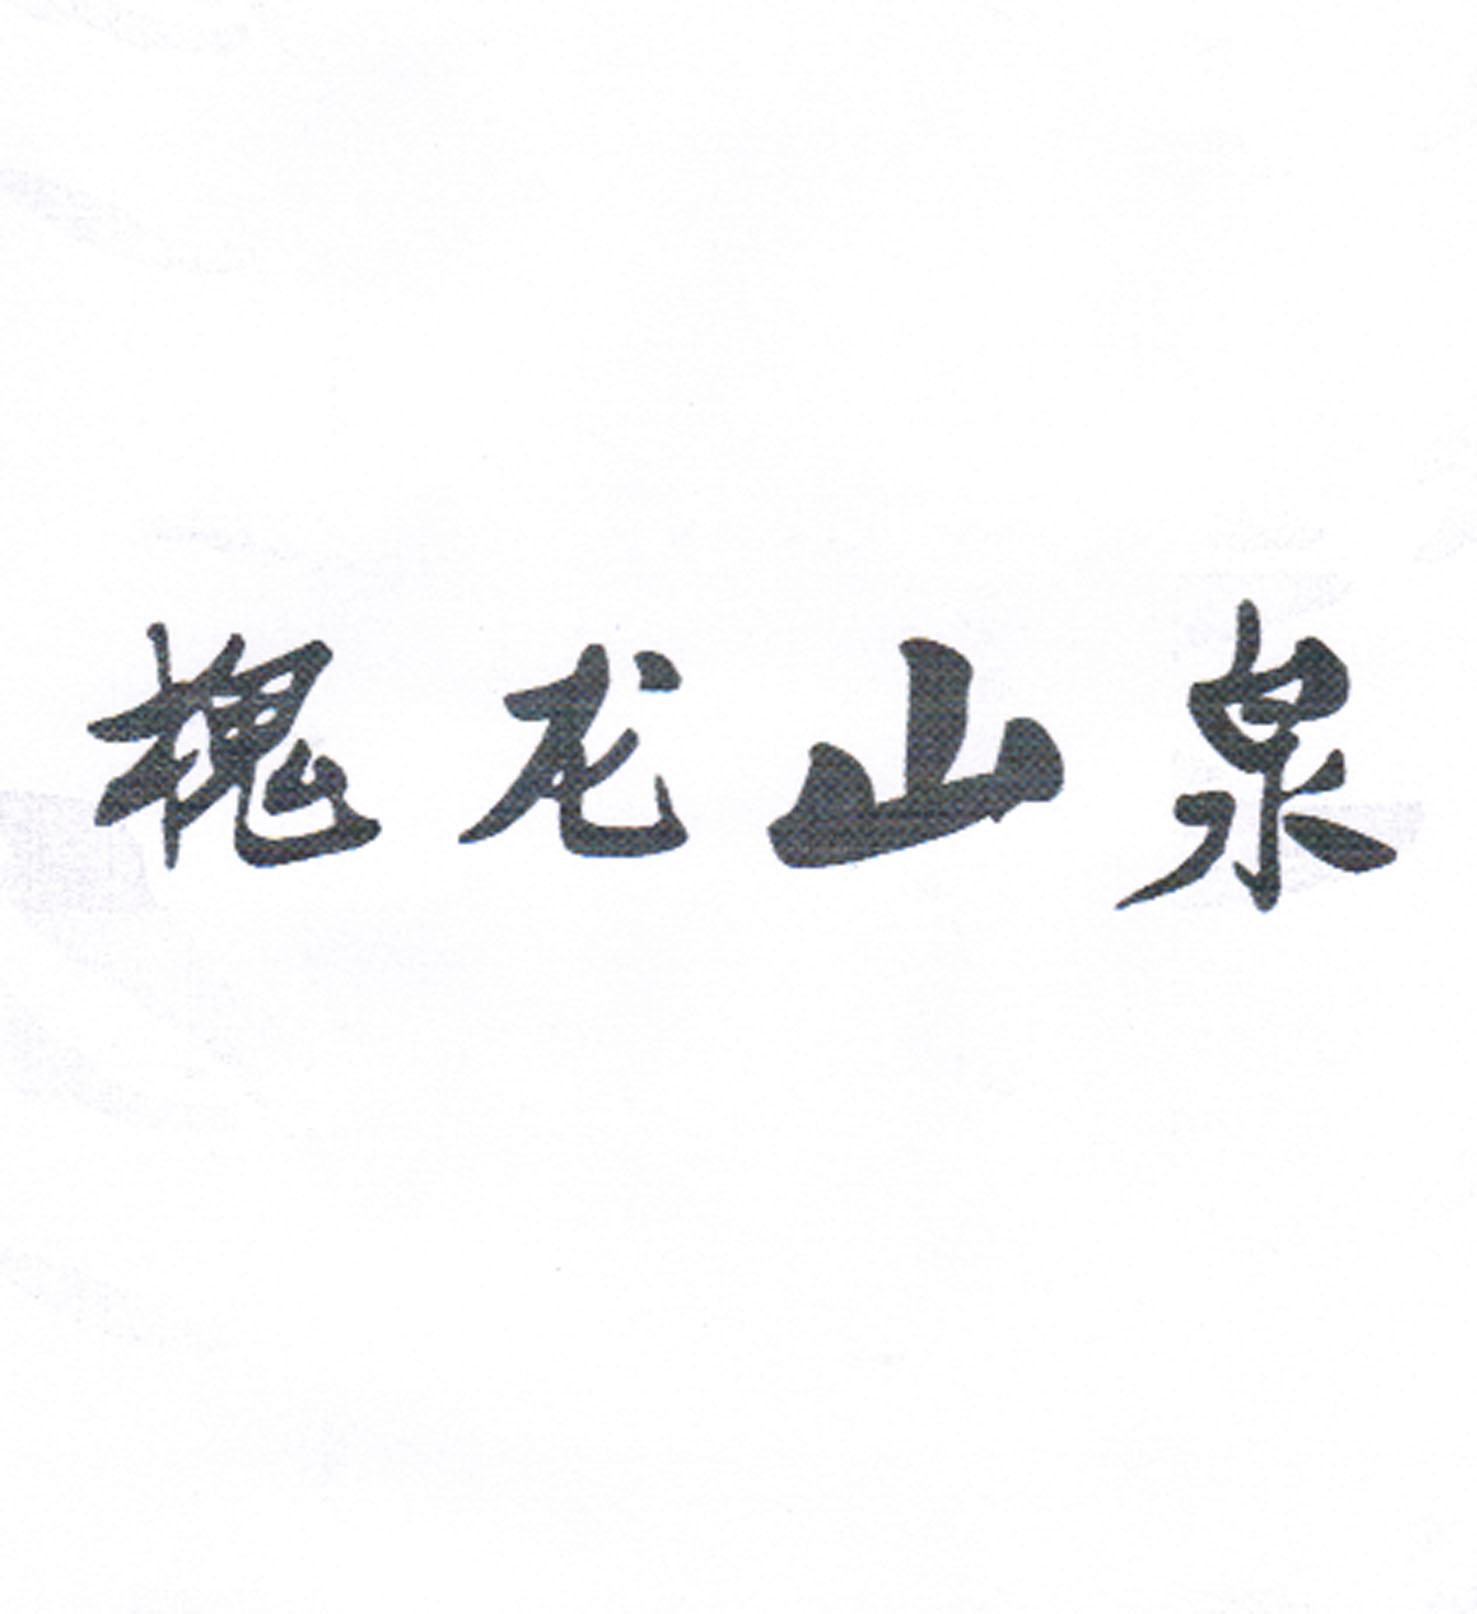 槐龙山泉